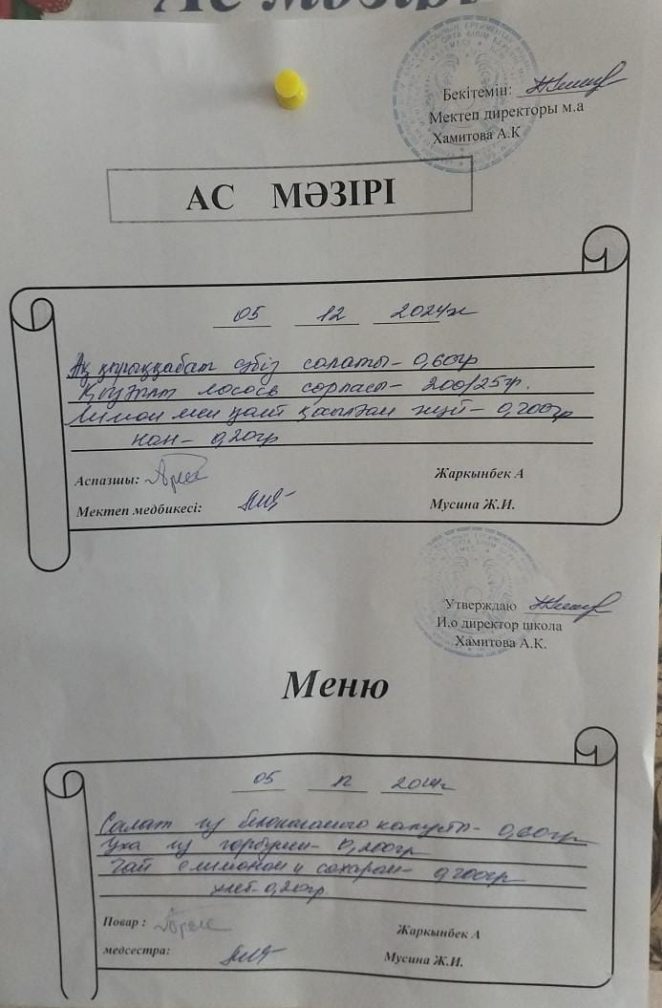 Ас мәзірі
Бекітемін:
Мектеп директоры м.а
Хамитова А.К
АС МӘЗІРІ
05 12 2024ж
Ақ сәбіз салаты - 0,60гр
лосось сорпасы - 200/25гр.
Лимон мен қант қосылған шәй - 0,200гр
нан - 0,20гр
Аспазшы:
Жаркынбек А
Мектеп медбикесі:
Мусина Ж.И.
Утверждаю
И.о директор школа
Хамитова А.К.
Меню
05 12 2024г
Салат из белокочанной капусты - 0,60гр
Уха из горбуши - 0,200гр
Чай с лимоном и сахаром - 0,200гр
хлеб - 0,20гр
Повар :
Жаркынбек А
медсестра:
Мусина Ж.И.